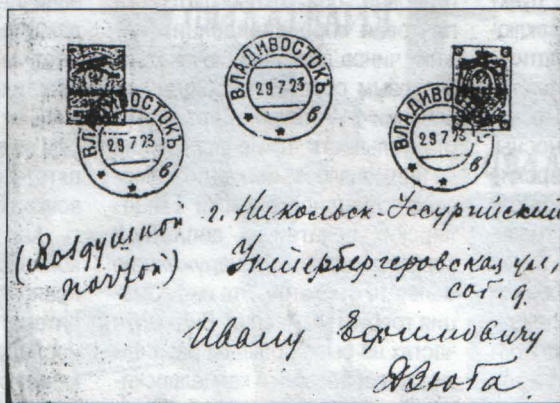 ВЛАДИВОСТОКЪ
29 7 23
в
ВЛАДИВОСТОКЪ
29 7 23
в
ВЛАДИВОСТОКЪ
29 7 23
в
(Воздушной
почтой)
г. Никольск-Уссурийский
ул.,
соб. д.
Ивану Ефимовичу
Дзюба